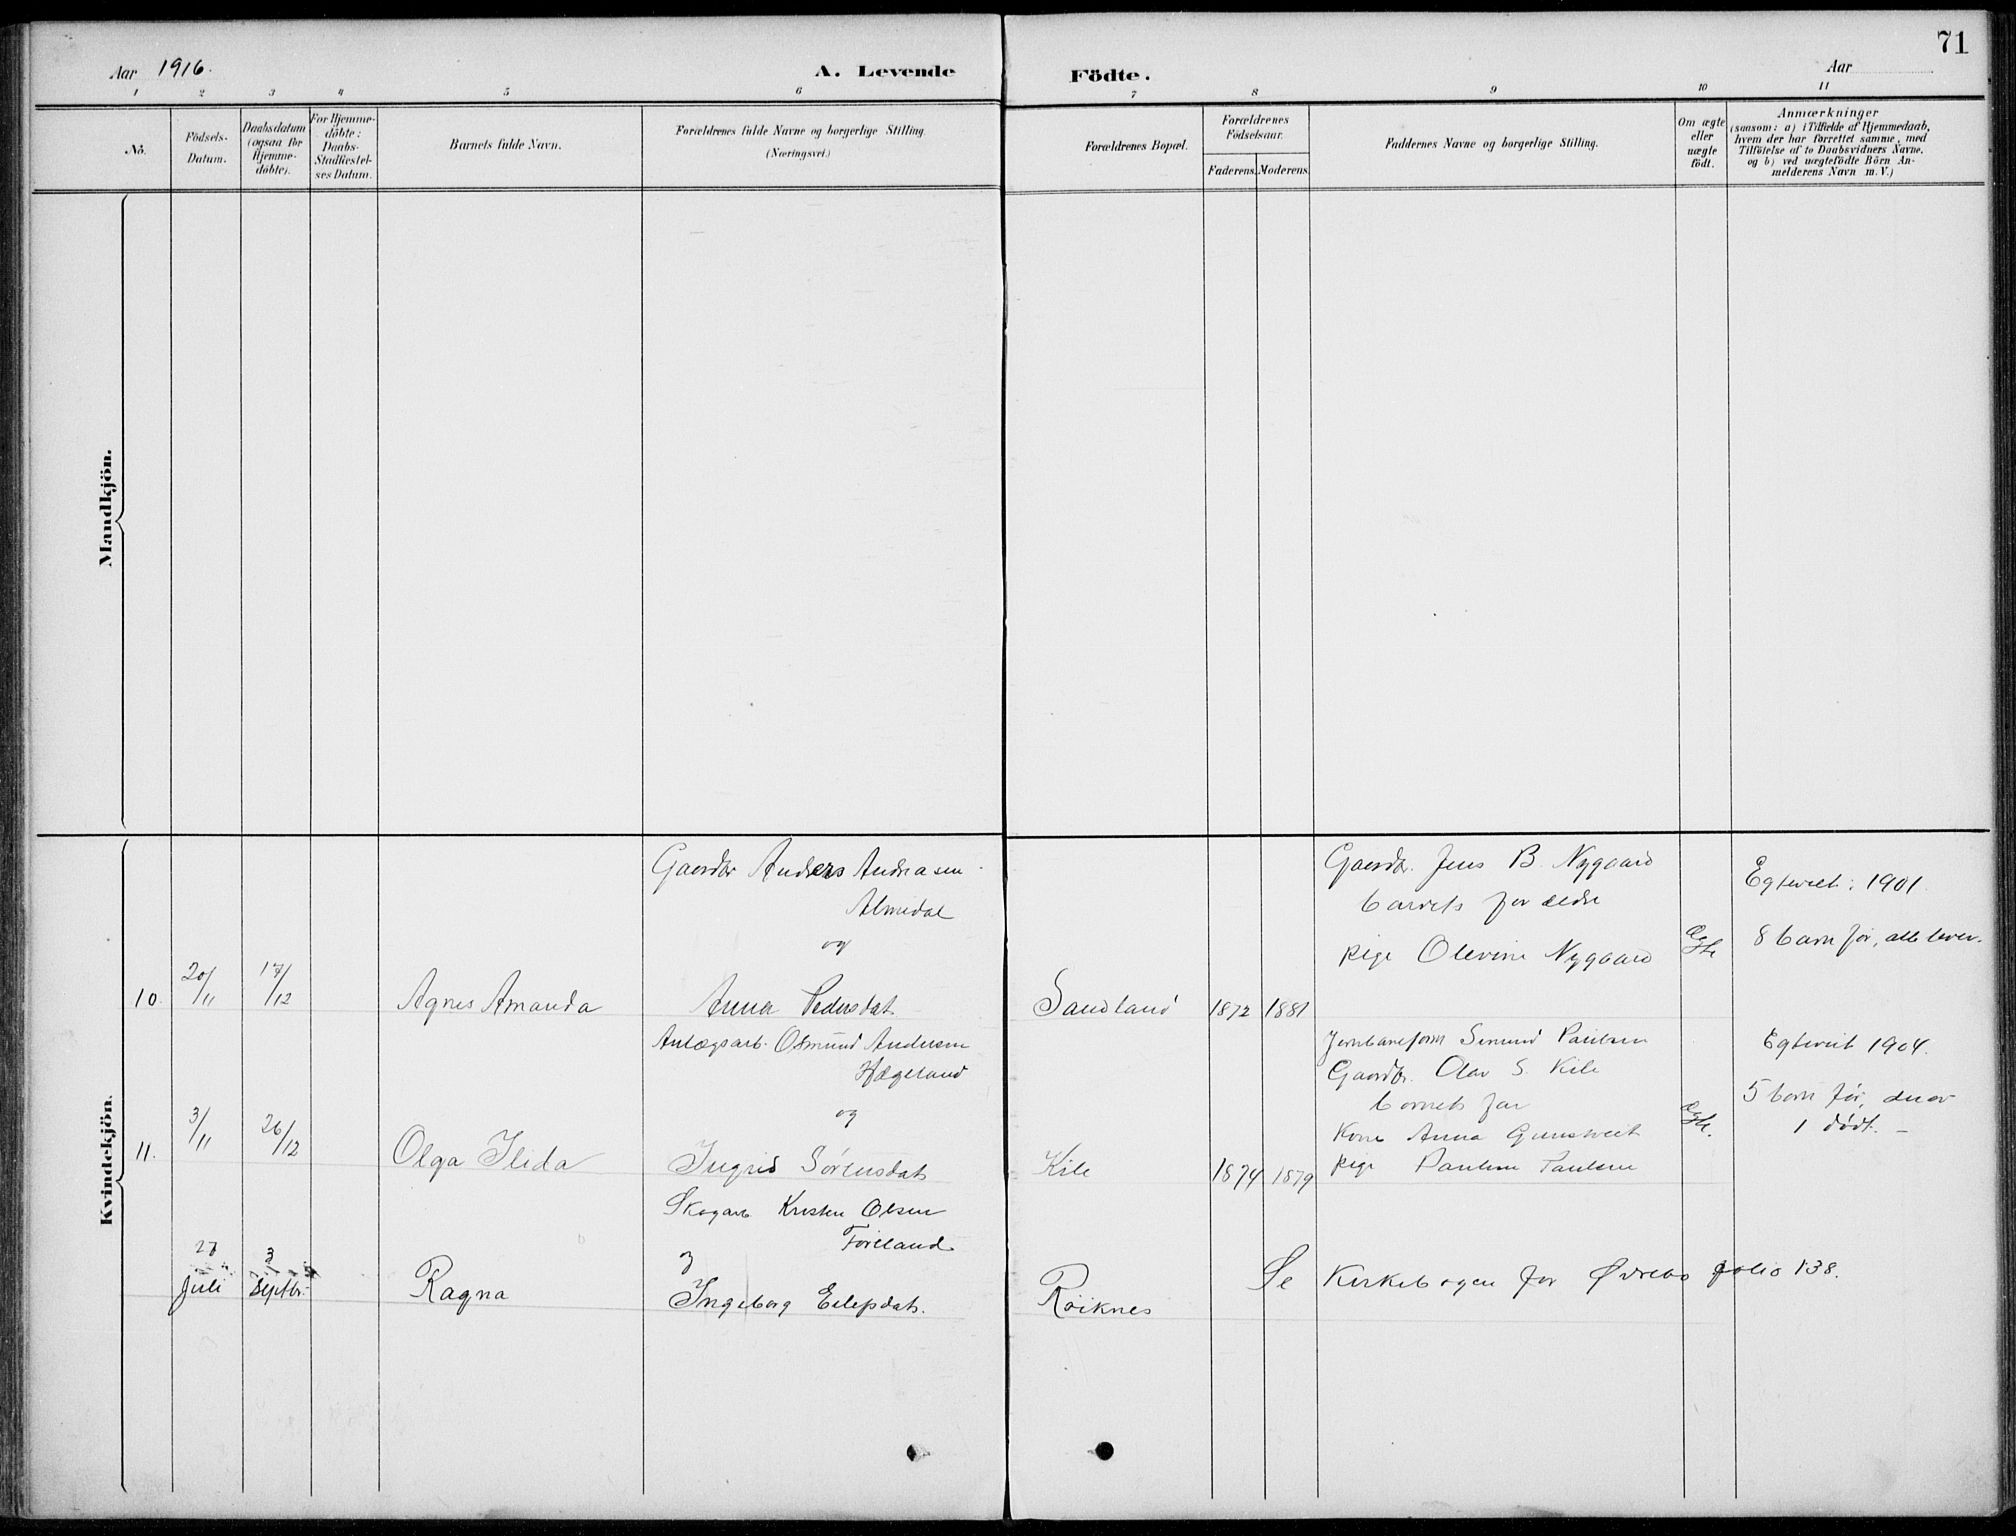 71
Aar 1916.
A. Levende Födte.
Aar
1 2 3 4 5 6 7 8 9 10 11
No.
Födsels-Datum.
Daabsdatum (ogsaa for Hjemme-döbte).
For Hjemme-döbte: Daabs-Stadfæstel-ses Datum.
Barnets fulde Navn.
Forældrenes fulde Navne og borgerlige Stilling.
(Næringsvei.)
Forældrenes Bopæl.
Forældrenes Födselsaar.
Faderens. Moderens.
Faddernes Navne og borgerlige Stilling.
Om ægte eller uægte födt.
Anmærkninger
(saasom: a) i Tilfælde af Hjemmedaab,
hvem der har forrettet samme, med
Tilföielse af to Daabsvidners Navne,
og b) ved uægtefödte Börn An-
melderens Navn m.V.)
Mandkjön.
Kvindekjön.
Gaardbr Anders Andreasen
Almedal
og
10. 20/11 17/12 Agnes Amanda Anna Pedersdat. Sandland 1872 1881
Gaardbr. Jens B. Nygaard
barnets forældre
pige Olevine Nygaard
Egte
Egteviet: 1901.
8 barn før, alle lever.
Anlægsarb. Osmund Andersen
Hægeland
og
11. 3/11 26/12 Olga Ilida Ingrid Sørensdat. Kile 1874 1879
Jernbaneform Simund Paulsen
Gaardbr. Olav S. Kile
barnets far
Kone Anna Gunstveit
pige Pauline Paulsen
Egte.
Egteviet 1904.
5 barn før, derav
1 død. –
Skogarb. Kristen Olsen
Føreland
og
27 Juli 3 Septbr. Ragna Ingeborg Eilefsdat. Røiknes
Se Kirkebogen for Øvrebø folio 138.